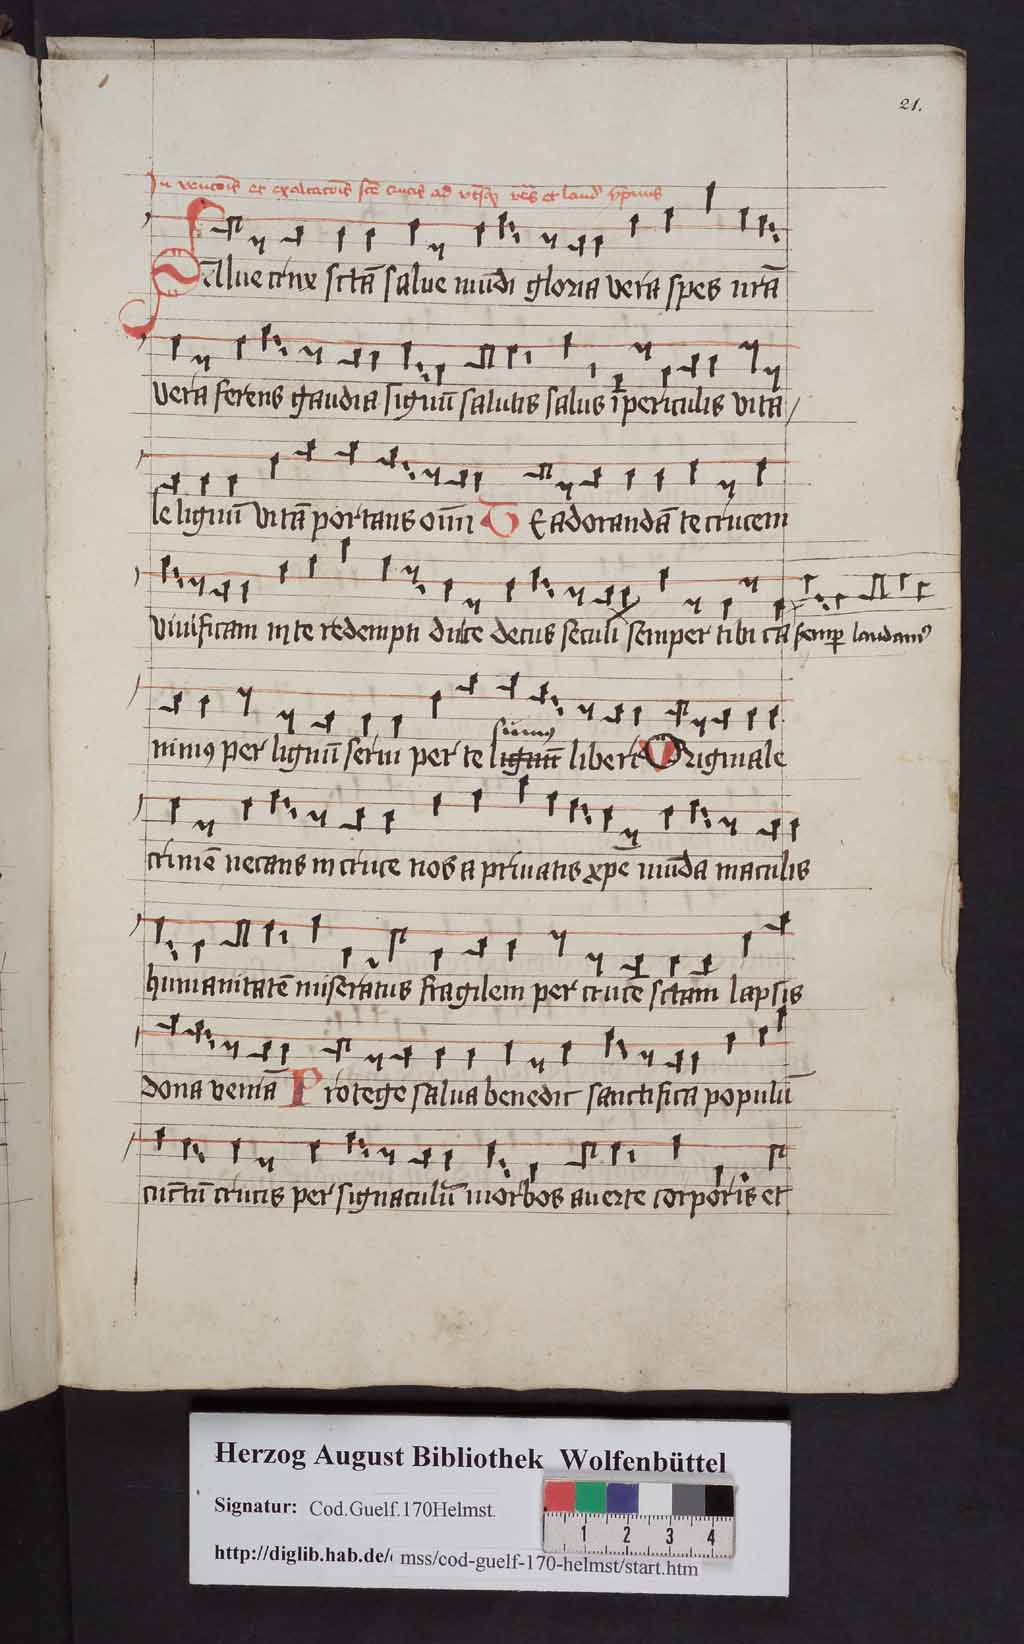 21.
In vencōis et exaltacōis scē crucis ad utsqʒ vēs et laud hymnus
Salue crux sctā salue mūdi gloria vera spes nrā
vera ferens gaudia signū salutis salus ī periculis vita/
le lignū vitā portans oīm Te adorandā te crucem
viuificam in te redempti dulce decus seculi semper tibi ca semp laudamꝰ
nimꝰ per lignū serui per te lignū sumꝰ liberi Originale
crimē necans in cruce nos a priuatis xpē mūda maculis
humanitatē miseratus fragilem per crucē sctam lapsis
dona veniā Protege salua benedic sanctifica populū
cūctū crucis per signaculū morbos auerte corporis et
Herzog August Bibliothek Wolfenbüttel
Signatur: Cod.Guelf.170Helmst.
1 2 3 4
http://diglib.hab.de/ mss/cod-guelf-170-helmst/start.htm